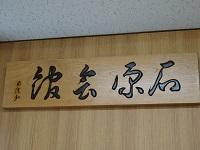 石原会館